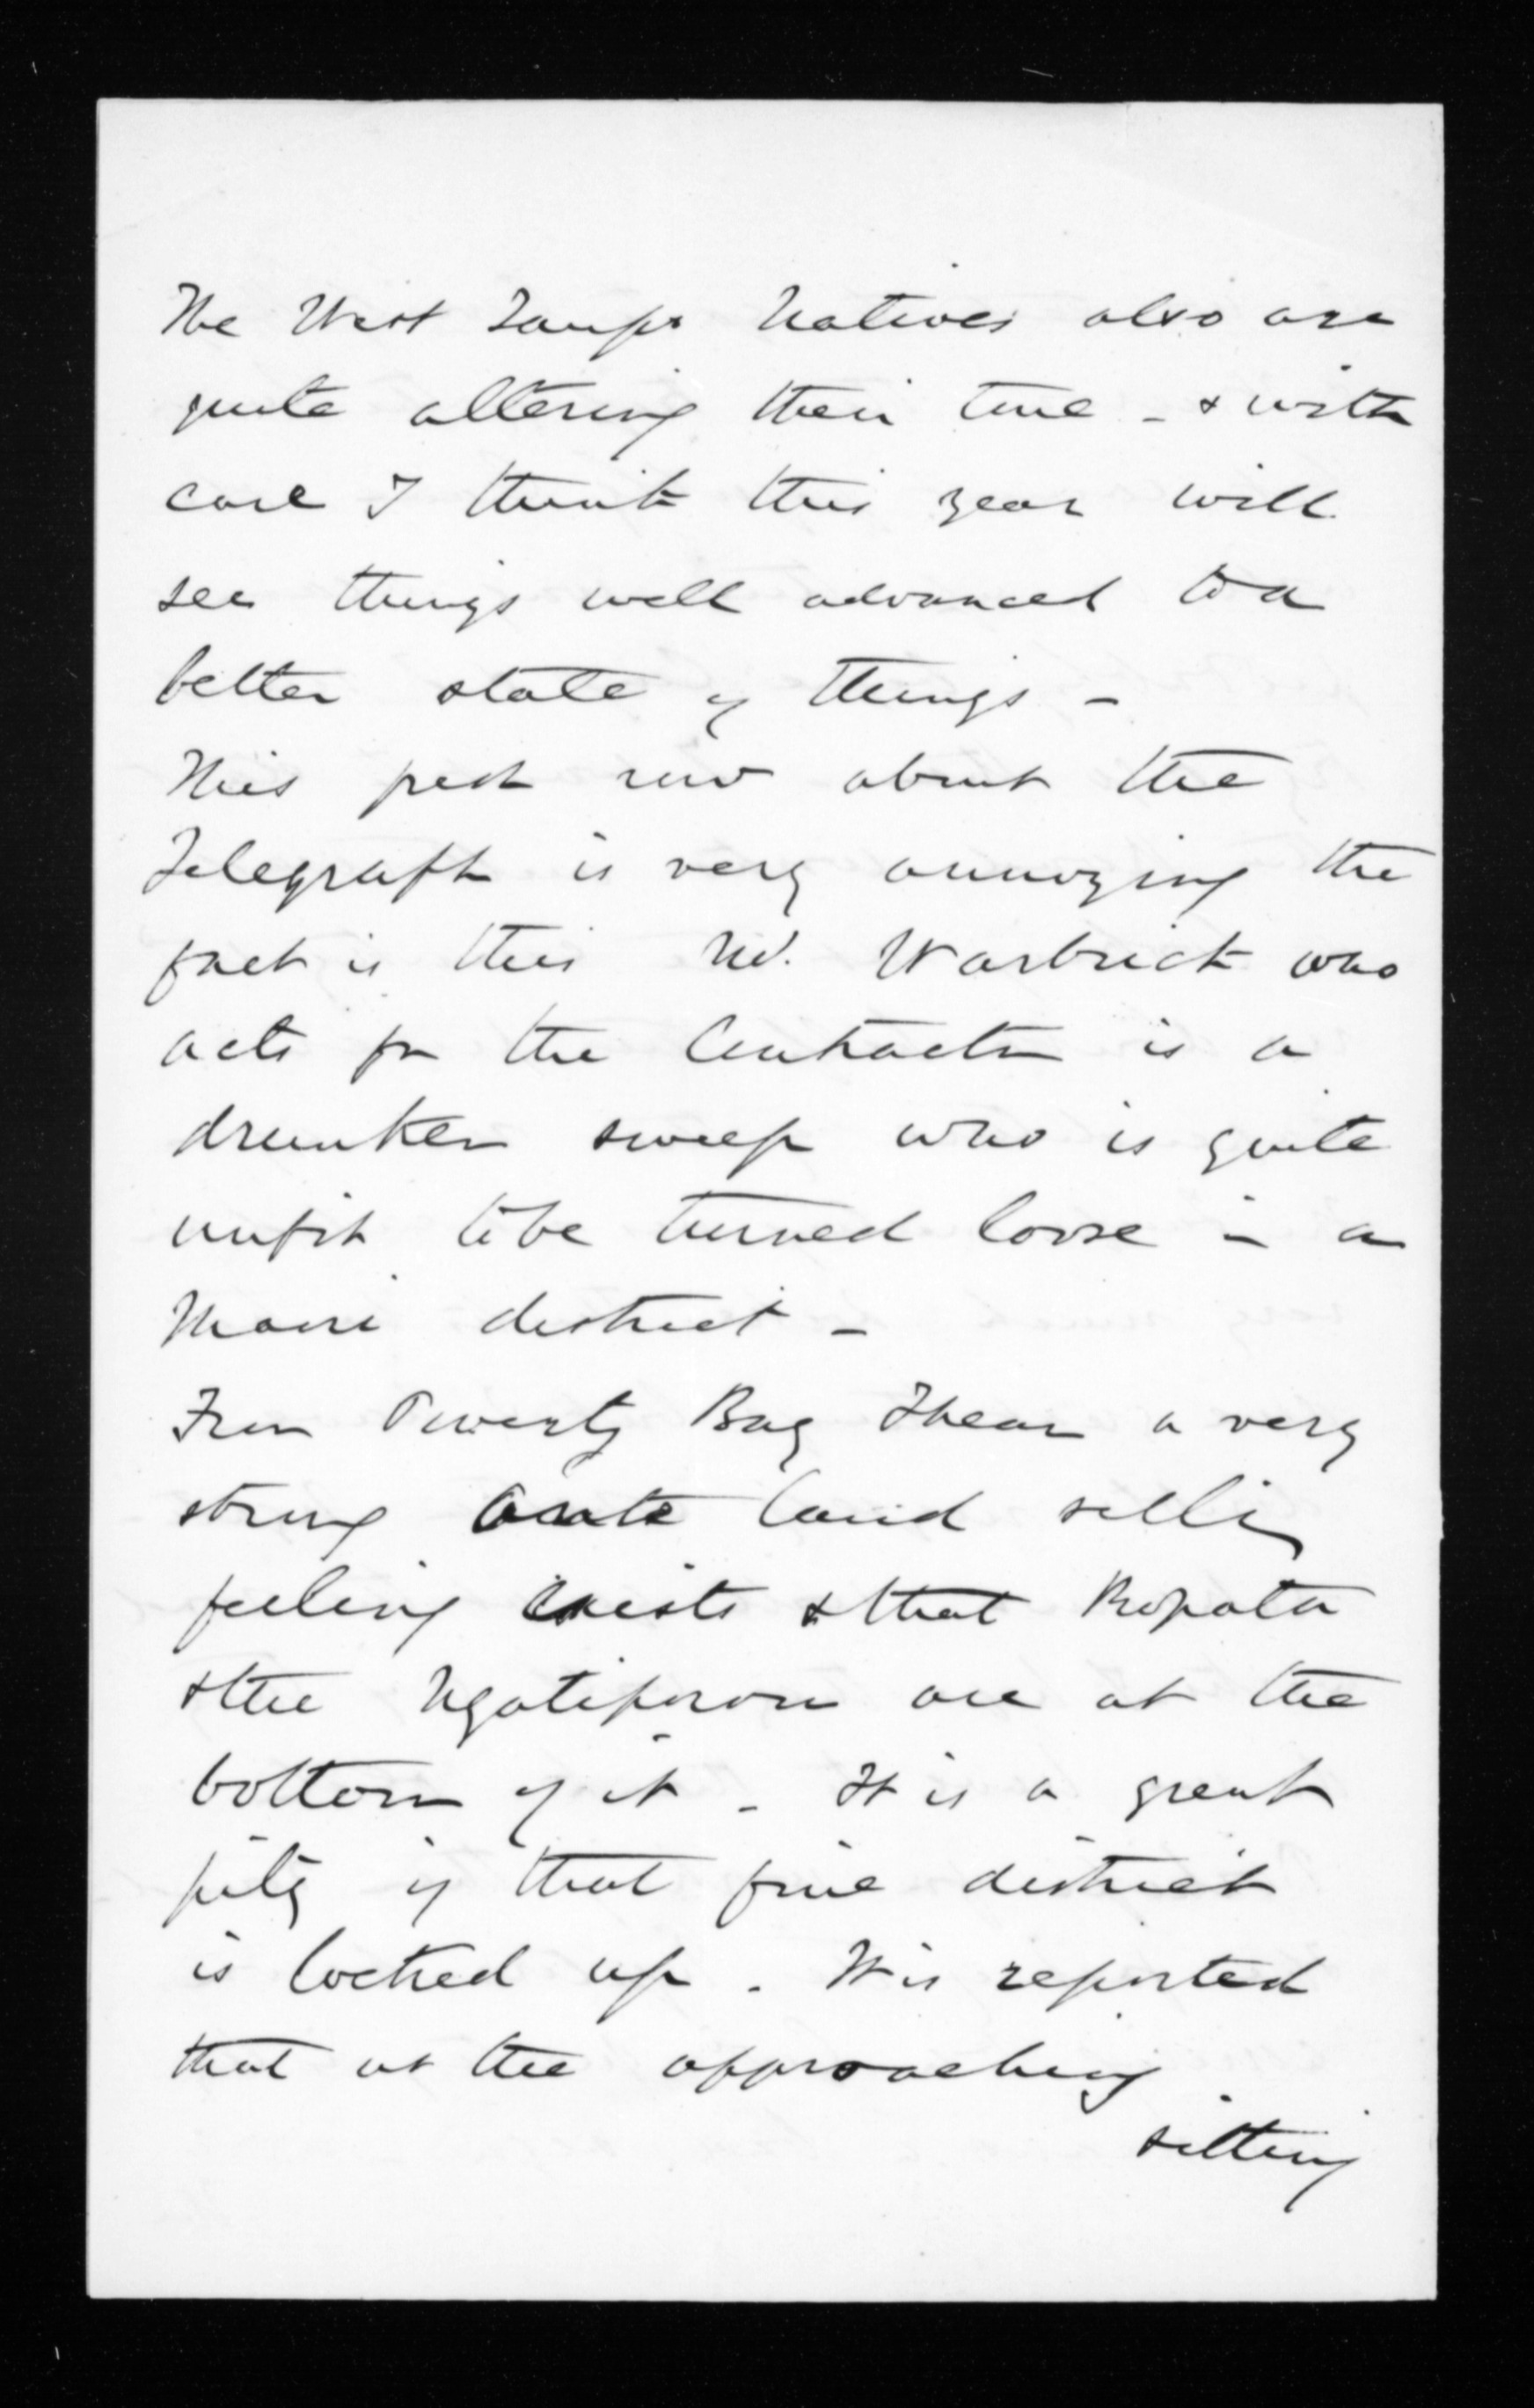 The West Taupo Natives also are
quite altering their tune - & with
care I think this year will
see things well advanced to a
better state of things -
This past row about the
Telegraph is very annoying the
fact is this Mr. Warbrick who
acts for the Contractor is a
drunken sweep who is quite
unfit to be turned loose in a
Maori district -
From Poverty Bay I hear a very
strong ante land selling
feeling exists & that Ropata
& the Ngatiporou are at the
bottom of it - It is a great
pity if that fine district
is locked up . It is reported
that at the approaching
sitting